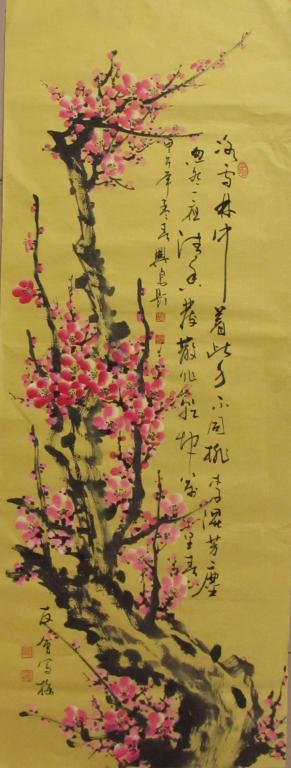 冰雪林中着此身不同桃李混芳塵
忽然一夜清香發散作乾坤萬里春
甲午年
寫梅